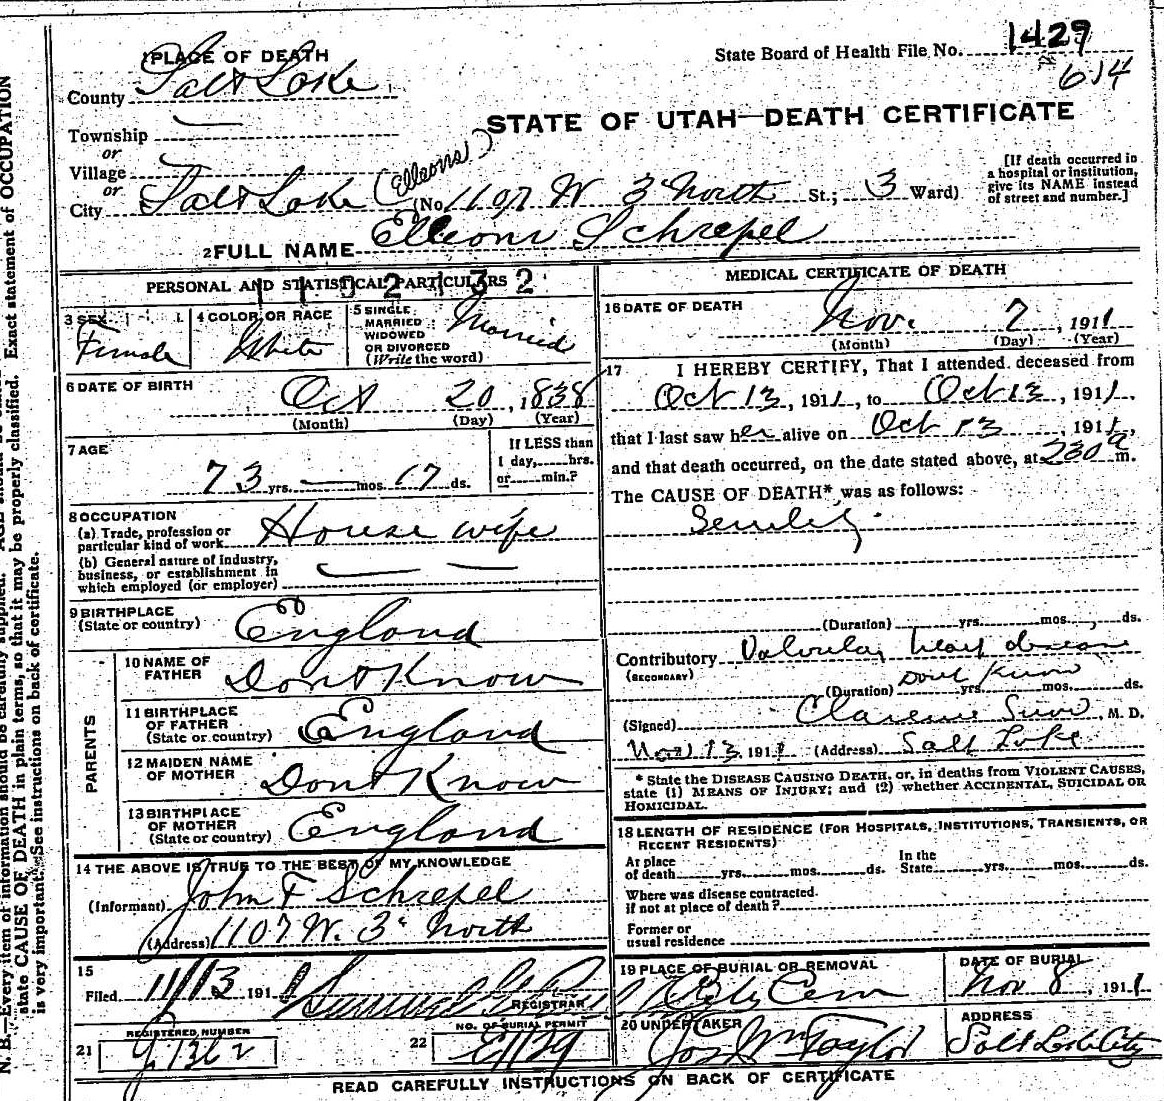 1 PLACE OF DEATH
State Board of Health File No. 1429
614
County Salt Lake
STATE OF UTAH—DEATH CERTIFICATE
Township —
or
Village
or
City Salt Lake (Elleoms) (No. 1107 W 3" North St.; 3 Ward)
[If death occurred in
a hospital or institution,
give its NAME instead
of street and number.]
2 FULL NAME Elleoni Schrepel
PERSONAL AND STATISTICAL PARTICULARS
1102132
3 SEX Female
4 COLOR OR RACE White
5 SINGLE
MARRIED
WIDOWED
OR DIVORCED
(Write the word) Married
6 DATE OF BIRTH Oct 20, 1838
(Month) (Day) (Year)
7 AGE
73 yrs. — mos. 17 ds.
If LESS than
1 day, hrs.
or min.?
8 OCCUPATION
(a) Trade, profession or
particular kind of work House wife
(b) General nature of industry,
business, or establishment in
which employed (or employer) — —
9 BIRTHPLACE
(State or country) England
PARENTS
10 NAME OF
FATHER Dont Know
11 BIRTHPLACE
OF FATHER
(State or country) England
12 MAIDEN NAME
OF MOTHER Dont Know
13 BIRTHPLACE
OF MOTHER
(State or country) England
14 THE ABOVE IS TRUE TO THE BEST OF MY KNOWLEDGE
(Informant) John F Schrepel
(Address) 1107 W. 3" North
15
Filed 11/13 1911
REGISTRAR
REGISTERED NUMBER
21
NO. OF BURIAL PERMIT
22 E1139
MEDICAL CERTIFICATE OF DEATH
16 DATE OF DEATH Nov. 7, 1911
(Month) (Day) (Year)
17 I HEREBY CERTIFY, That I attended deceased from
Oct 13, 1911, to Oct 13, 1911,
that I last saw her alive on Oct 13, 1911,
and that death occurred, on the date stated above, at 230 a m.
The CAUSE OF DEATH* was as follows:
Senility
(Duration) yrs. mos. ds.
Contributory Valvular heart disease
(SECONDARY)
Dont Know
(Duration) yrs. mos. ds.
(Signed) Clarence Snow, M. D.
Nov 13 1911 (Address) Salt Lake
* State the DISEASE CAUSING DEATH, or, in deaths from VIOLENT CAUSES,
state (1) MEANS OF INJURY; and (2) whether ACCIDENTAL, SUICIDAL OR
HOMICIDAL.
18 LENGTH OF RESIDENCE (FOR HOSPITALS, INSTITUTIONS, TRANSIENTS, OR
RECENT RESIDENTS)
At place
of death yrs. mos. ds.
In the
State yrs. mos. ds.
Where was disease contracted
if not at place of death?
Former or
usual residence
19 PLACE OF BURIAL OR REMOVAL
City Cem
DATE OF BURIAL
Nov 8, 1911
20 UNDERTAKER
Jos Wm Taylor
ADDRESS
Salt Lake City
READ CAREFULLY INSTRUCTIONS ON BACK OF CERTIFICATE
N. B.—Every item of information should be carefully supplied.
Exact statement of OCCUPATION
state CAUSE OF DEATH in plain terms, so that it may be properly classified.
is very important. See instructions on back of certificate.